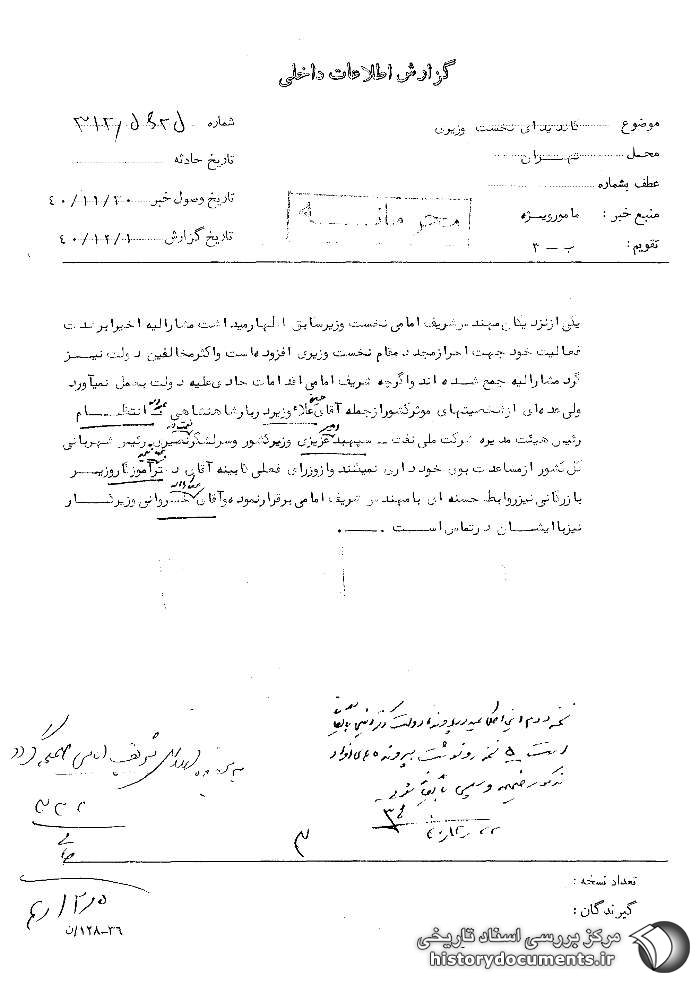 گزارش اطلاعات داخلی
موضوع کاندیدای نخست وزیری
محل تهران
عطف بشماره
منبع خبر : مامورویژه
تقویم: ب - ۳
شماره ۳۱۲
تاریخ حادثه
تاریخ وصول خبر ۴۰/۱۱/۳۰
تاریخ گزارش ۴۰/۱۲/۱
محرمانه
یکی ازنزدیکان مهندسشریف امامی نخست وزیرسابق اظهارمیداشت مشارالیه اخیرابرشدت
فعالیت خود جهت احرازمجدد مقام نخست وزیری افزوده‌است واکثرمخالفین دولت نیز
گرد مشارالیه جمع شده اند واگرچه شریف امامی اقدامات حادی‌علیه دولت بعمل نمیآورد
ولی عده‌ای ازشخصیتهای موثرکشورازجمله آقای علاء وزیردربارشاهنشاهی انتظام
رئیس هیئت مدیره شرکت ملی نفت - سپهبدعزیزی وزیرکشور وسرلشگرنصیری رئیس شهربانی
کل کشور ازمساعدت بوی خودداری نمینمند وازوزرای فعلی کابینه آقای دکترآموزگاروزیر
بازرگانی نیزروابط حسنه ای بامهندس شریف امامی برقرارنموده وآقای خسروانی وزیرکار
نیزباایشان درتماس است .
نسخه دوم
است ۵ نسخه رونوشت بپرونده های افراد
مذکور ضمیمه و سپس بایگانی شود
بپرونده شریف امامی ضمیمه گردد
۳۲۲
۳
تعداد نسخه :
گیرندگان :
۳۶-۱۲۸/ن
مرکز بررسی اسناد تاریخی
historydocuments.ir